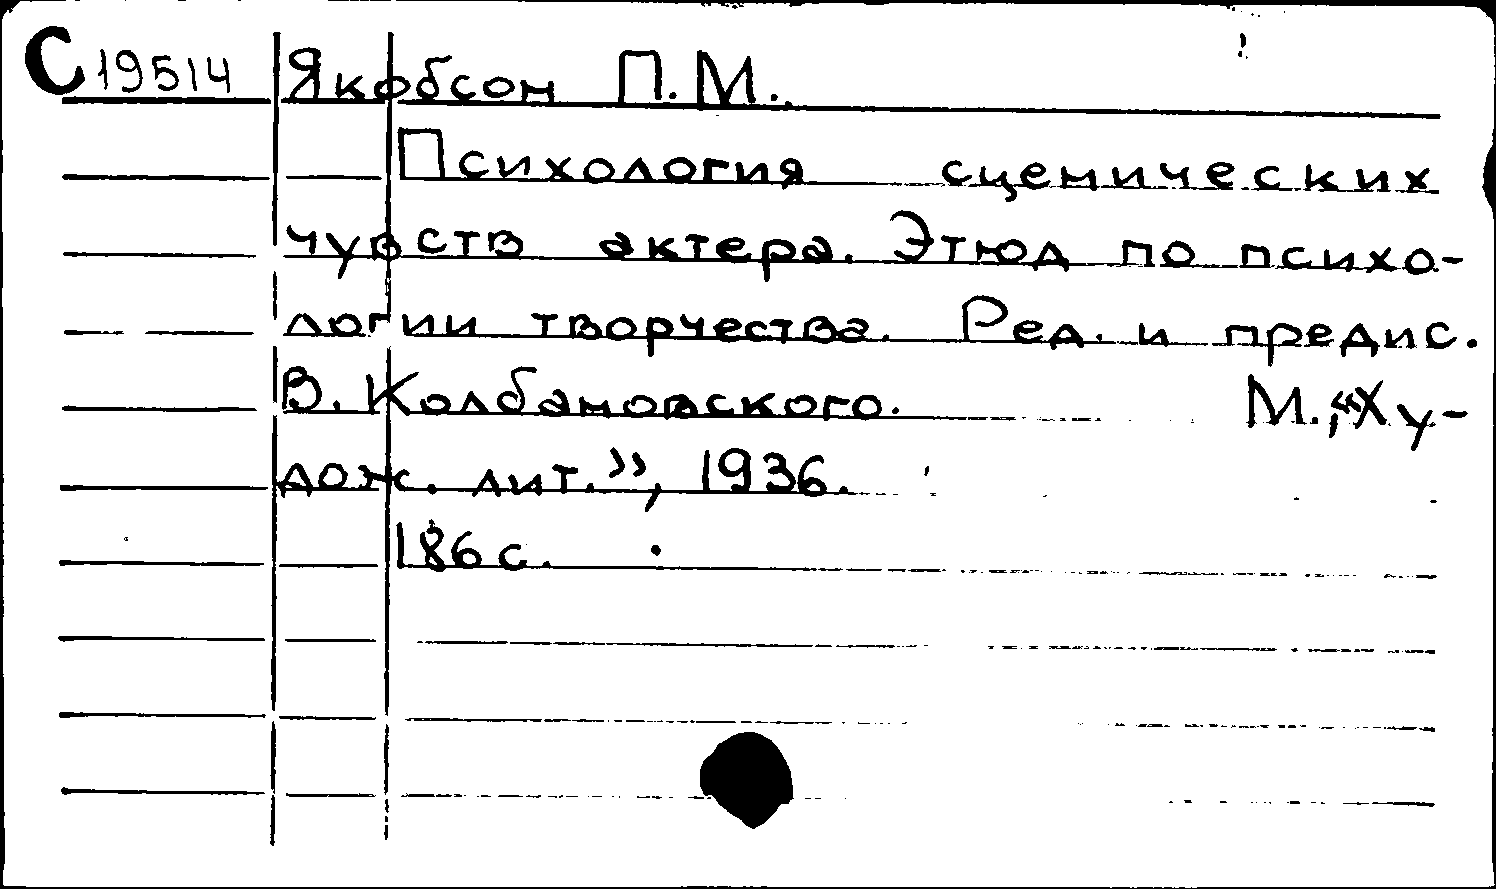 С 19514 Якобсон П.М.
Психология сценических
чувств актера. Этюд по психо-
логии творчества. Ред. и предис.
В. Колбановского. М., «Ху-
дож. лит.», 1936.
186 с.